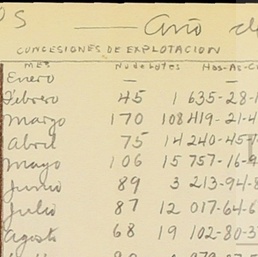 OS — Año d
CONCESIONES DE EXPLOTACION
MES No de Lotes Has-As-C
Enero —
Febrero 45 1 635-28-1
Marzo 170 108 419-21-4
Abril 75 14 240-45-
Mayo 106 15 757-16-9
Junio 89 3 213-94-8
Julio 87 12 017-64-6
Agosto 68 19 102-80-3